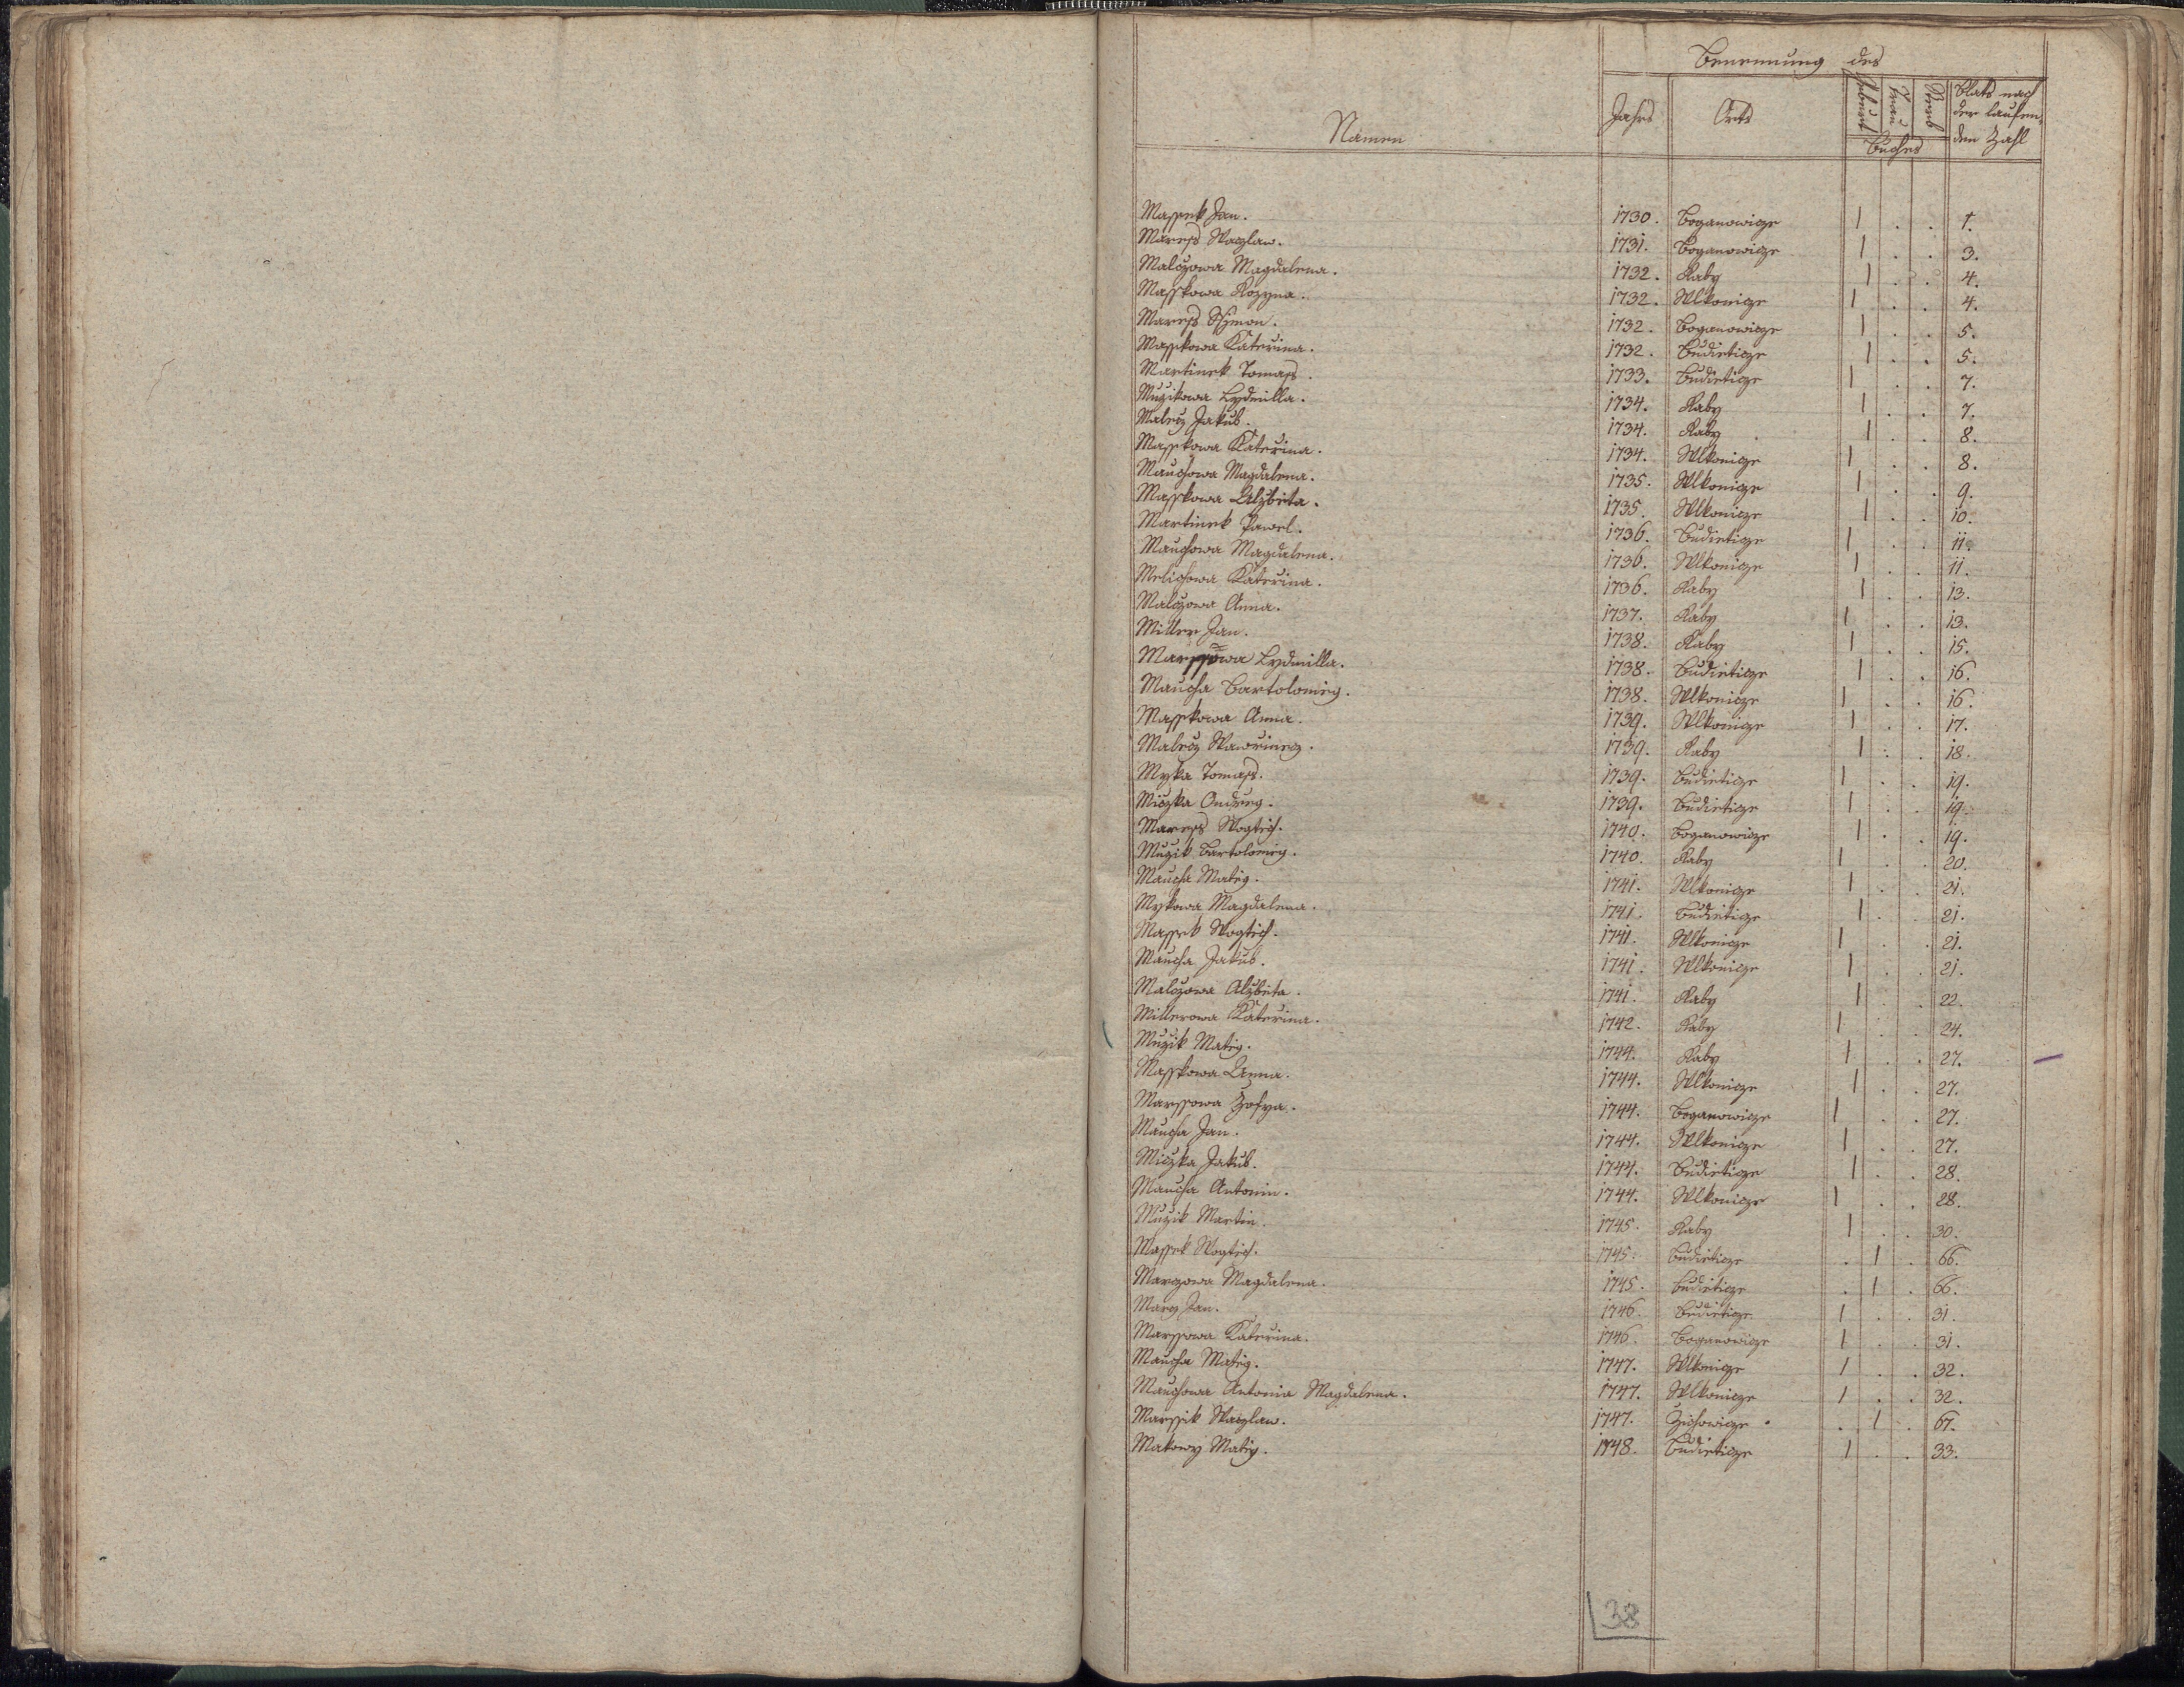 Benennung des
Namen Jahrs Orts Geburt Trau Sterb Buches Blats nach der laufen- den Zahl
Massek Jan. 1730. Boganowicze 1 . . 1.
Maress Waczlaw. 1731. Boganowicze 1 . . 3.
Malczowa Magdalena. 1732. Raby 1 . . 4.
Masskowa Rozyna. 1732. Wlkonicze 1 . . 4.
Maress Ssimon. 1732. Boganowicze 1 . . 5.
Masskowa Katerina. 1732. Budieticze 1 . . 5.
Martinek Tomass. 1733. Budieticze 1 . . 7.
Muzikowa Lydmilla. 1734. Raby 1 . . 7.
Malecz Jakub. 1734. Raby 1 . . 8.
Masskowa Katerina. 1734. Wlkonicze 1 . . 8.
Mauchowa Magdalena. 1735. Wlkonicze 1 . . 9.
Masskowa Alzbieta. 1735. Wlkonicze 1 . . 10.
Martinek Pawel. 1736. Budieticze 1 . . 11.
Mauchowa Magdalena. 1736. Wlkonicze 1 . . 11.
Melichowa Katerina. 1736. Raby 1 . . 13.
Malczowa Anna. 1737. Raby 1 . . 13.
Miller Jan. 1738. Raby 1 . . 15.
Marssowa Lydmilla. 1738. Budieticze 1 . . 16.
Maucha Bartolomieg. 1738. Wlkonicze 1 . . 16.
Masskowa Anna. 1739. Wlkonicze 1 . . 17.
Malecz Wawrineg. 1739. Raby 1 . . 18.
Myka Tomass. 1739. Budieticze 1 . . 19.
Miczka Ondreg. 1739. Budieticze 1 . . 19.
Maress Wogtich. 1740. Boganowicze 1 . . 19.
Muzik Bartolomieg. 1740. Raby 1 . . 20.
Maucha Matieg. 1741. Wlkonicze 1 . . 21.
Mykowa Magdalena. 1741. Budieticze 1 . . 21.
Massek Wogtich. 1741. Wlkonicze 1 . . 21.
Maucha Jakub. 1741. Wlkonicze 1 . . 21.
Malczowa Alzbieta. 1741. Raby 1 . . 22.
Millerowa Katerina. 1742. Raby 1 . . 24.
Muzik Matieg. 1744. Raby 1 . . 27.
Masskowa Anna. 1744. Wlkonicze 1 . . 27.
Marssowa Zofya. 1744. Boganowicze 1 . . 27.
Maucha Jan. 1744. Wlkonicze 1 . . 27.
Miczka Jakub. 1744. Budieticze 1 . . 28.
Maucha Antonin. 1744. Wlkonicze 1 . . 28.
Muzik Martin. 1745. Raby 1 . . 30.
Massek Wogtich. 1745. Budieticze . 1 . 66.
Marzowa Magdalena. 1745. Budieticze . 1 . 66.
Marz Jan. 1746. Budieticze 1 . . 31.
Marssowa Katerina. 1746. Boganowicze 1 . . 31.
Maucha Matieg. 1747. Wlkonicze 1 . . 32.
Mauchowa Antonia Magdalena. 1747. Wlkonicze 1 . . 32.
Marssik Waczlaw. 1747. Zichowicze . 1 . 67.
Makowy Matieg. 1748. Budieticze 1 . . 33.
38